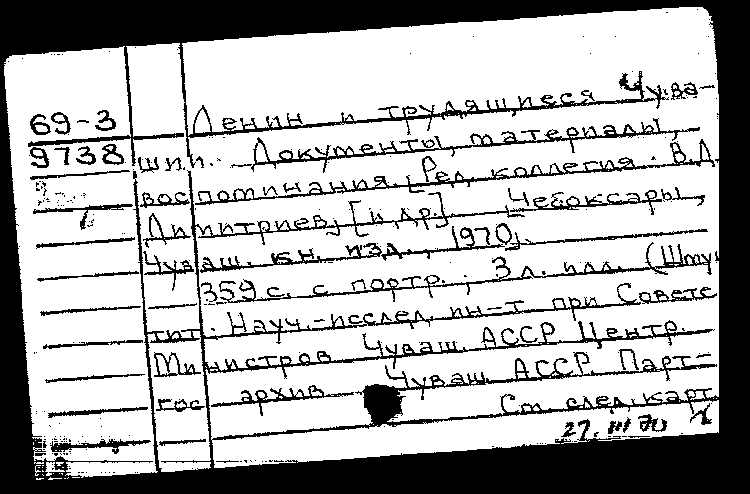 69-3 Ленин и трудящиеся Чува-
9738 шии. Документы, материалы,
воспоминания. [Ред. коллегия: В.Д.
Димитриев, [и др.]. Чебоксары,
Чуваш. кн. изд., 1970].
359 с. с портр.; 3 л. илл. (Шму
тит: Науч.-исслед. ин-т при Совете
Министров Чуваш. АССР. Центр.
гос архив Чуваш. АССР. Парт-
См. след. карт
27. III 70